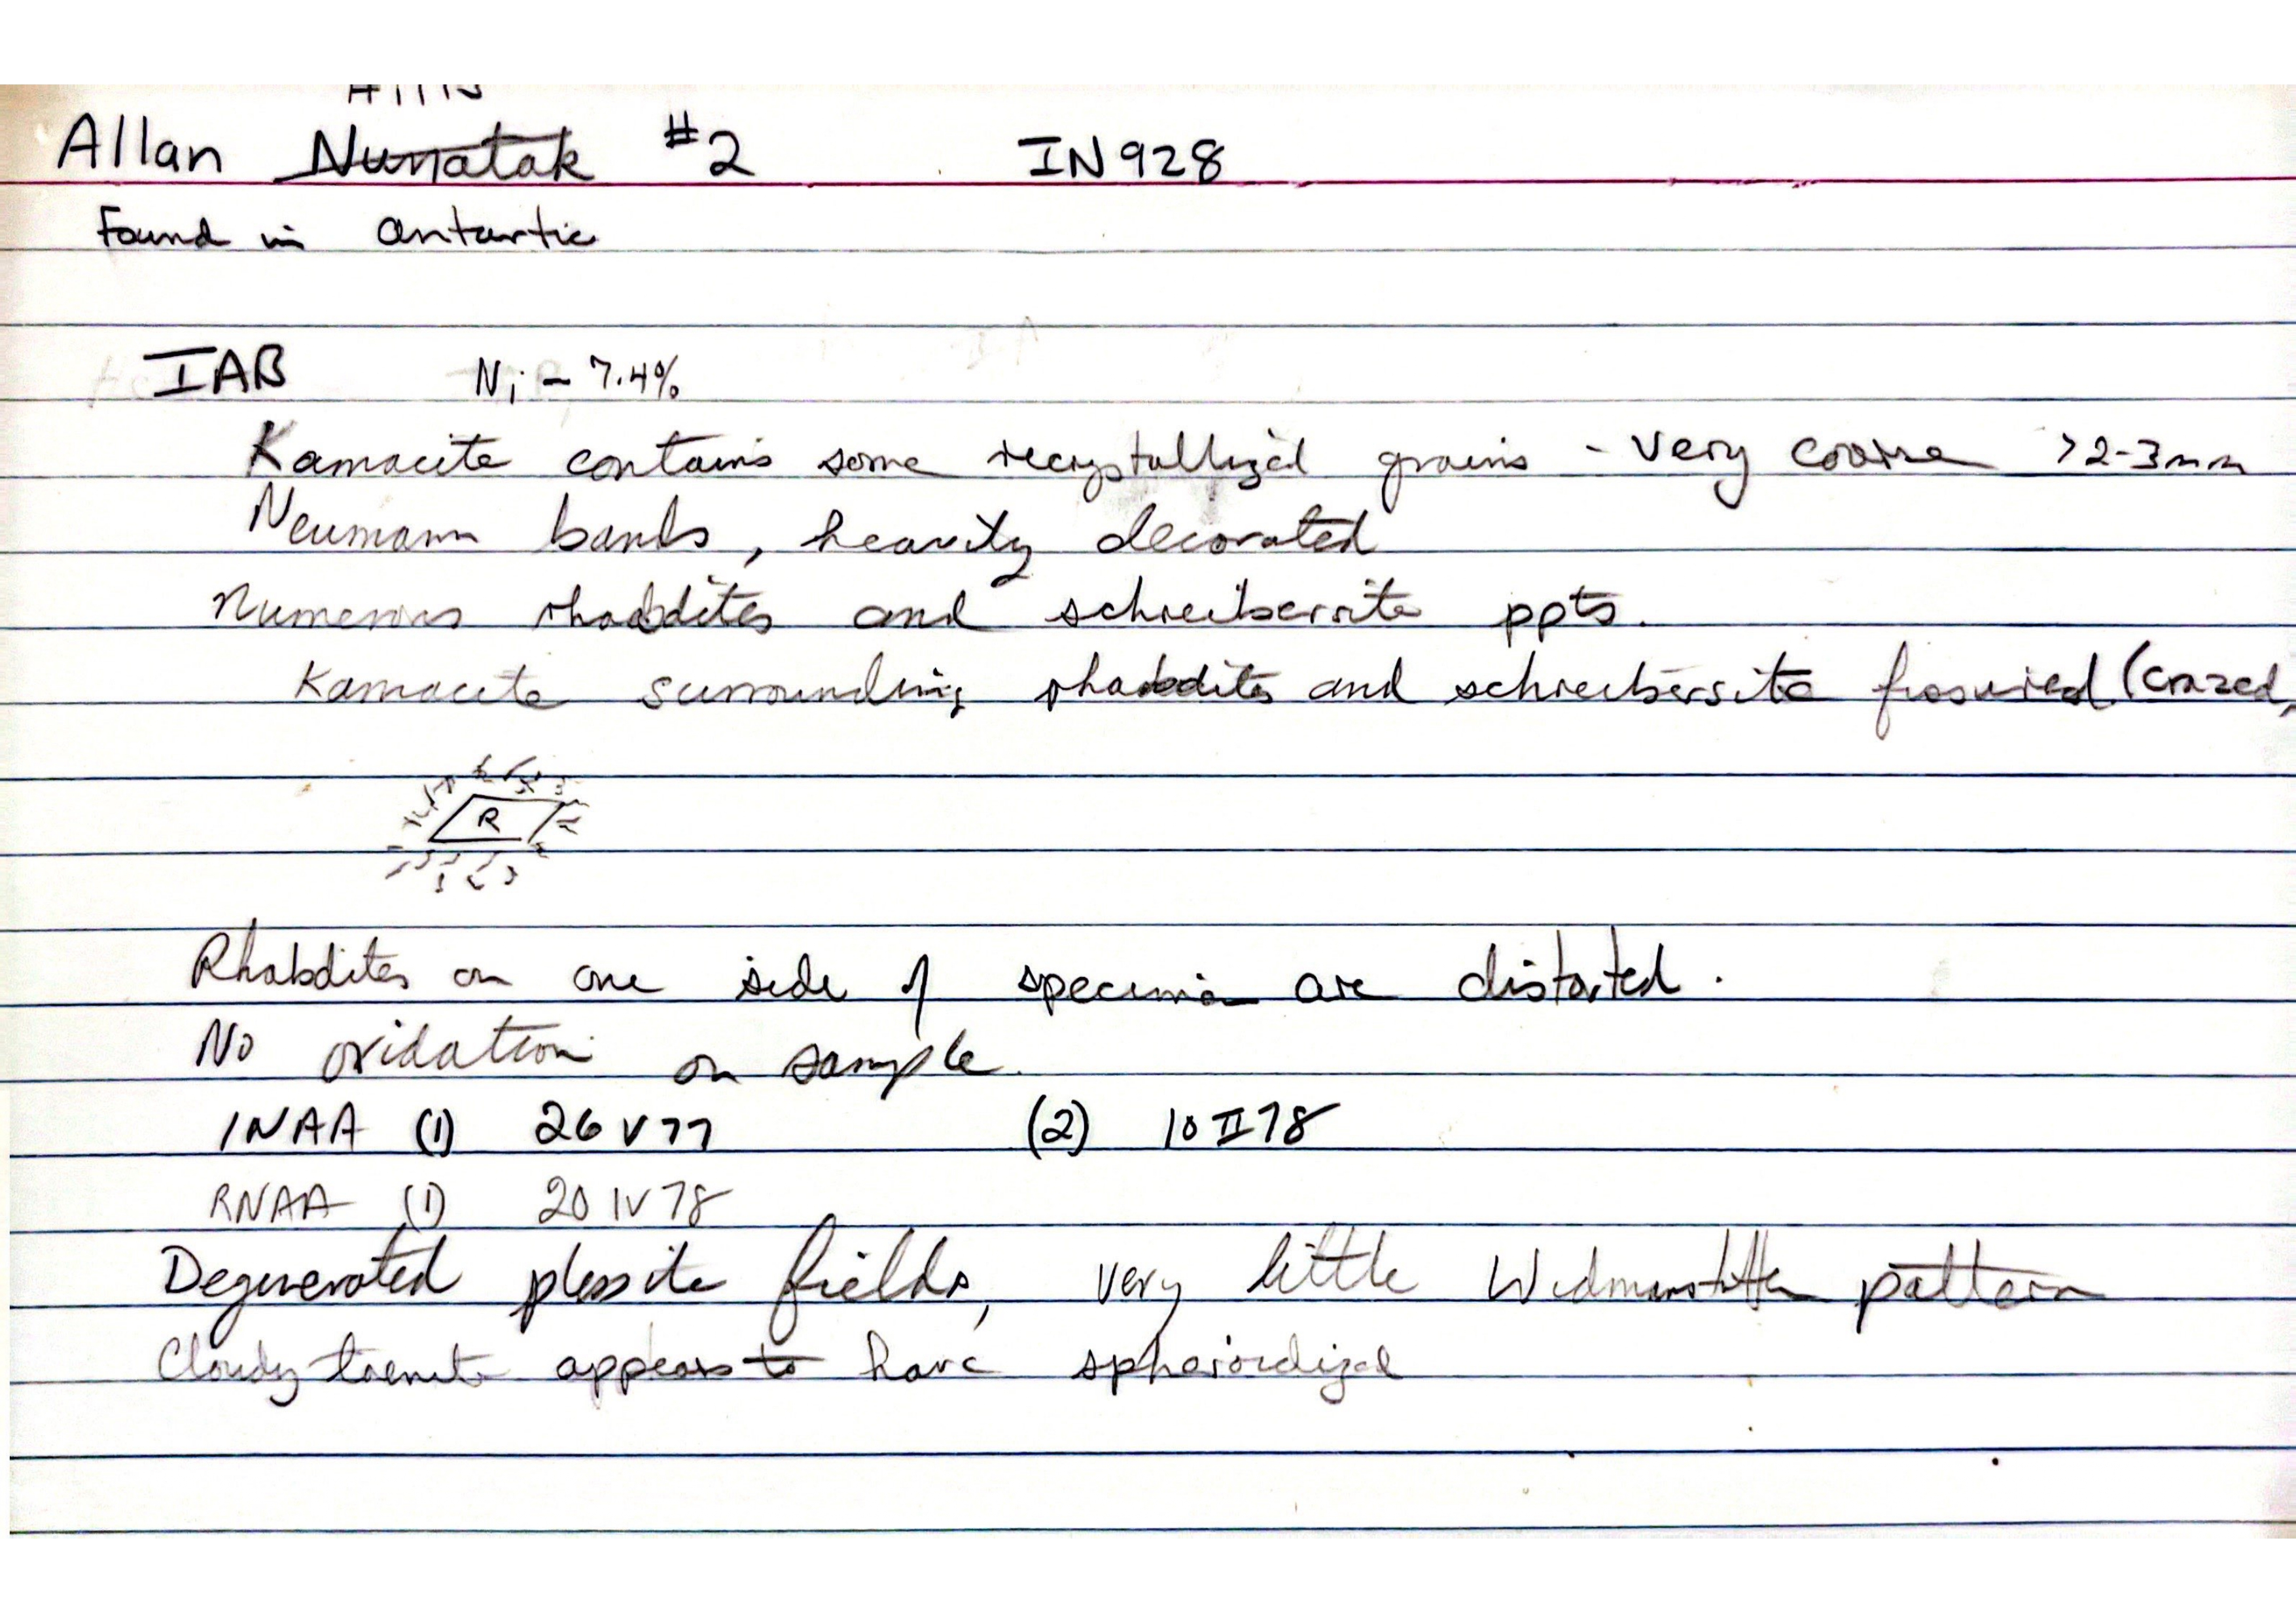 Hills
Allan Nunatak #2 IN928
Found in Antartic
IAB Ni - 7.4%
Kamacite contains some recrystallized grains - very coarse >2-3mm
Neumann bands, heavily decorated
Numerous rhabdites and schreibersite ppts.
Kamacite surrounding rhabdites and schreibersite fissured (crazed,
R
Rhabdites on one side of specimen are distorted.
No oxidation on sample.
INAA (1) 26 V 77 (2) 10 II 78
RNAA (1) 20 IV 78
Degenerated plessite fields, very little Widmanstätten pattern
Cloudy taenite appears to have spheroidized